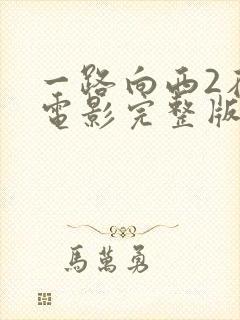 一路向西2
電影完整版
馬萬勇